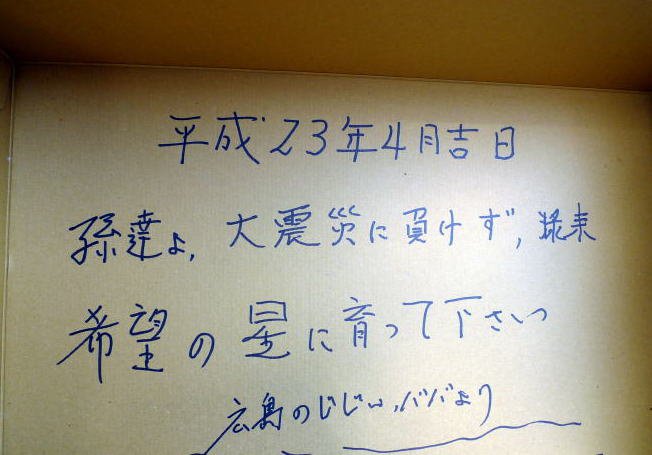 平成23年4月吉日
孫達よ,大震災に負けず,将来
希望の星に育って下さいっ
広島のじじい,ババより